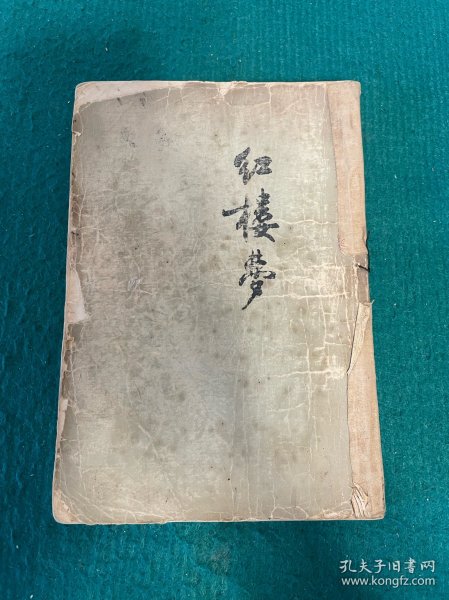 红楼梦
孔夫子旧书网
www.kongfz.com